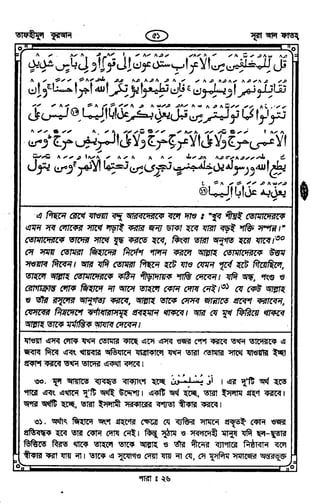 তাফহীমুল কুরআন ৫১ সূরা আল ফাতহ
قُلْ لِّلْمُخَلَّفِيْنَ مِنَ الْاَعْرَابِ سَتُدْعَوْنَ اِلٰى قَوْمٍ اُولِيْ بَاْسٍ شَدِيْدٍ
تُقَاتِلُوْنَهُمْ اَوْ يُسْلِمُوْنَ ۚ فَاِنْ تُطِيْعُوْا يُؤْتِكُمُ اللّٰهُ اَجْرًا حَسَنًا ۚ وَاِنْ
تَتَوَلَّوْا كَمَا تَوَلَّيْتُمْ مِّنْ قَبْلُ يُعَذِّبْكُمْ عَذَابًا اَلِيْمًا ۝ لَيْسَ عَلَى
الْاَعْمٰى حَرَجٌ وَّلَا عَلَى الْاَعْرَجِ حَرَجٌ وَّلَا عَلَى الْمَرِيْضِ حَرَجٌ ؕ وَمَنْ
يُّطِعِ اللّٰهَ وَرَسُوْلَهٗ يُدْخِلْهُ جَنّٰتٍ تَجْرِيْ مِنْ تَحْتِهَا الْاَنْهٰرُ ۚ وَمَنْ يَّتَوَلَّ
يُعَذِّبْهُ عَذَابًا اَلِيْمًا ۝
এ পিছনে রেখে যাওয়া বদ্দু আরবদেরকে বলে দাও : "খুব শীঘ্রই তোমাদেরকে
এমন সব লোকের সাথে লড়াই করার জন্য ডাকা হবে যারা বড়ই শক্তি সম্পন্ন।"
তোমাদেরকে তাদের সাথে যুদ্ধ করতে হবে, কিংবা তারা অনুগত হয়ে যাবে।৩০
সে সময় তোমরা জিহাদের নির্দেশ পালন করলে আল্লাহ তোমাদেরকে উত্তম
সওয়াব দিবেন। আর যদি তোমরা পিছনে হটে যাও যেমন পূর্বে হটে গিয়েছিলে,
তাহলে আল্লাহ তোমাদেরকে কঠিন পীড়াদায়ক শাস্তি দেবেন। যদি অন্ধ, পংগু ও
রোগাক্রান্ত লোক জিহাদে না আসে তাহলে কোন দোষ নেই।৩১ যে কেউ আল্লাহ
ও তাঁর রসূলের আনুগত্য করবে, আল্লাহ তাকে সেসব জান্নাতে প্রবেশ করাবেন,
যেসবের নিম্নদেশে ঝর্ণাধারাসমূহ প্রবহমান থাকবে। আর যে মুখ ফিরিয়ে থাকবে
আল্লাহ তাকে মর্মান্তিক আযাব দেবেন।
যাওয়া এসব লোক যখন তোমার কাছে এসে এসব ওজর পেশ করবে তখন তাদেরকে এ
জবাব দিবে এবং খায়বার অভিযানে যাত্রাকালে যখন তারা তোমার সাথে যাওয়ার ইচ্ছা
প্রকাশ করবে তখন তাদের একথা বলবে।
৩০. মূল আয়াতে ব্যবহৃত বাক্যাংশ হচ্ছে اَوْ يُسْلِمُوْنَ । এর দু'টি অর্থ হতে
পারে এবং এখানে দু'টি অর্থই উদ্দেশ্য। একটি অর্থ হচ্ছে, তারা ইসলাম গ্রহণ করবে।
অপর অর্থটি হচ্ছে, তারা ইসলামী সরকারের বশ্যতা স্বীকার করবে।
৩১. অর্থাৎ জিহাদে অংশ গ্রহণের ক্ষেত্রে যে ব্যক্তির সামনে প্রকৃতই কোন ওজর
প্রতিবন্ধক হবে তার কোন দোষ নেই। কিন্তু সুঠাম ও সবলদেহী মানুষ যদি ছল-ছুতার
ভিত্তিতে বিরত থাকে তাহলে তাকে আল্লাহ ও তাঁর দীনের ব্যাপারে নিষ্ঠাবান বলে
স্বীকার করা যায় না। তাকে এ সুযোগও দেয়া যায় না যে, সে মুসলিম সমাজের অন্তর্ভুক্ত
পারা : ২৬